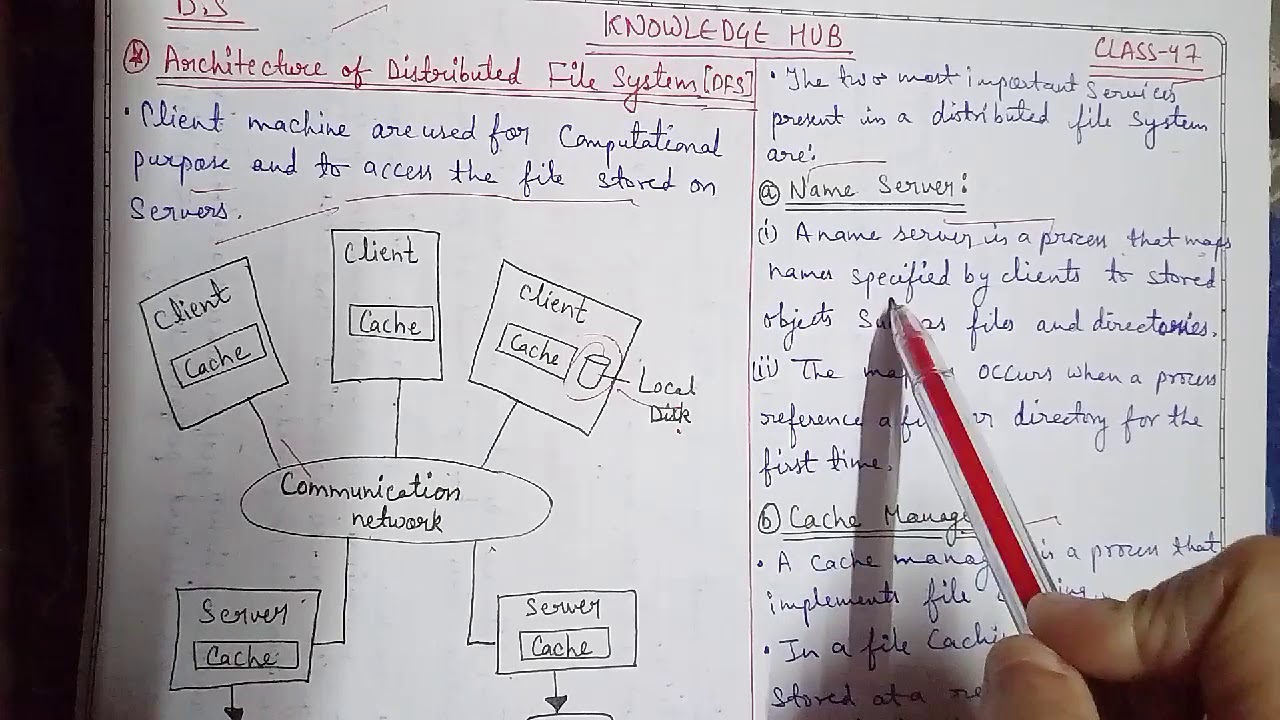 D.S
KNOWLEDGE HUB
CLASS-47
Architecture of Distributed File System [DFS]
• Client machine are used for Computational
purpose and to access the file stored on
Servers.
Client
Cache
Client
Cache
Client
Cache
Local
Disk
Communication
network
Server
Cache
Server
Cache
• The two most important Services
present in a distributed file System
are:
(a) Name Server:
(i) A name server is a process that maps
names specified by clients to stored
objects as files and directories.
(ii) The occurs when a process
reference a directory for the
first time.
(b) Cache
• A Cache is a process that
implements file
• In a file
Stored at a